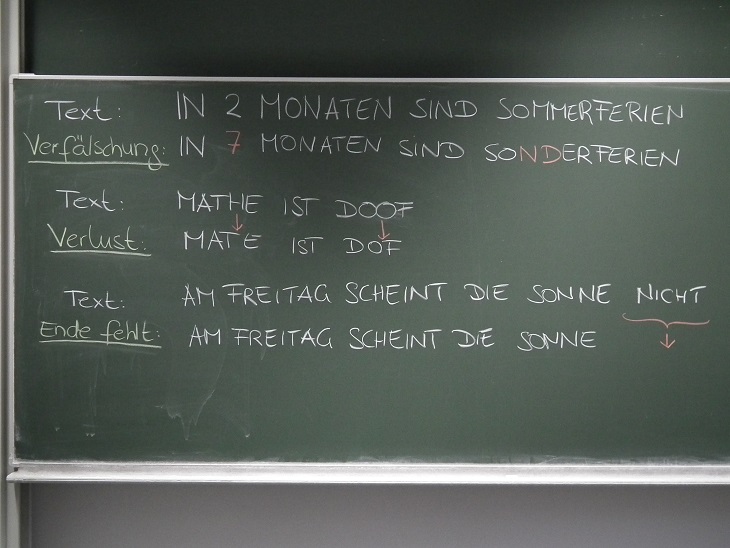 Text: IN 2 MONATEN SIND SOMMERFERIEN
Verfälschung: IN 7 MONATEN SIND SONDERFERIEN
Text: MATHE IST DOOF
Verlust: MATE IST DOF
Text: AM FREITAG SCHEINT DIE SONNE NICHT
Ende fehlt: AM FREITAG SCHEINT DIE SONNE